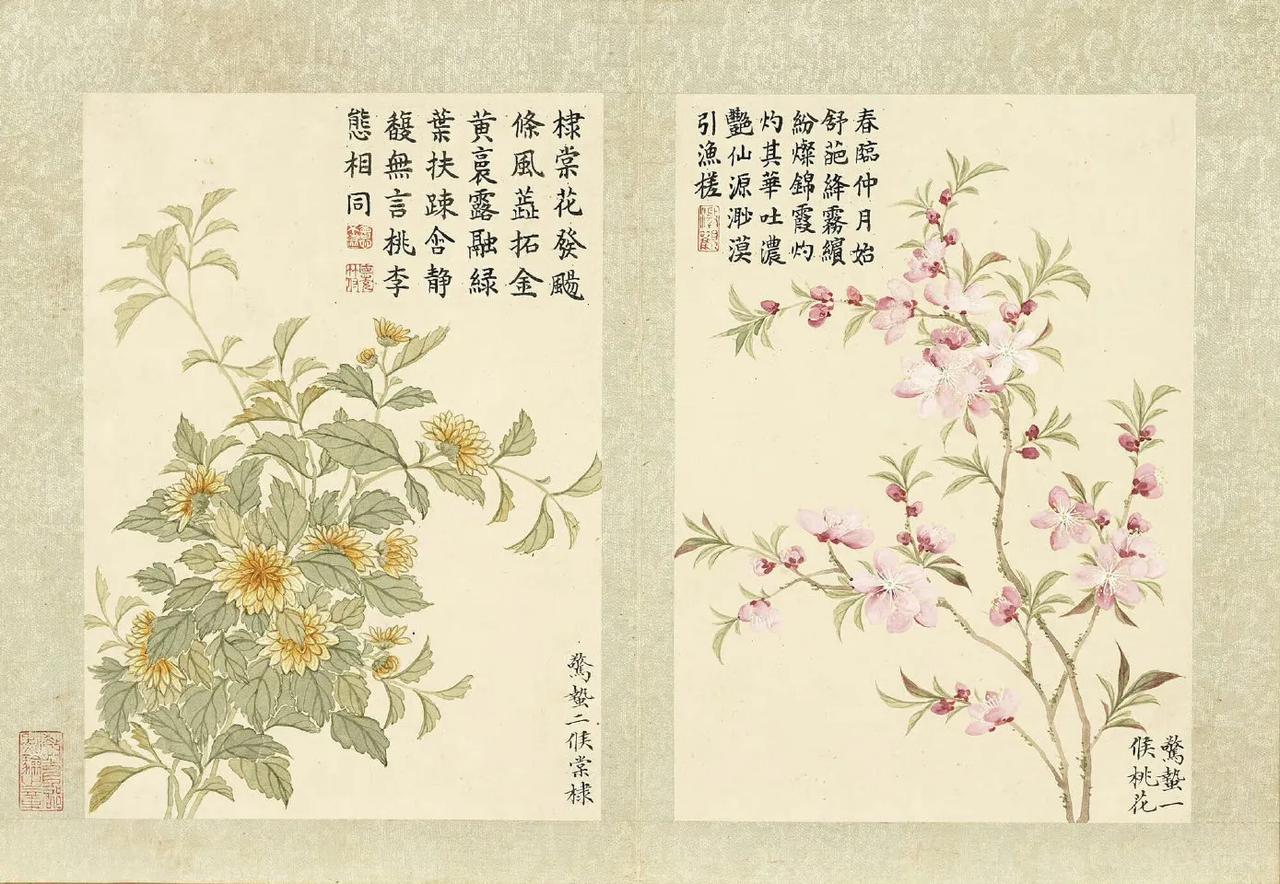 春臨仲月始
舒葩絳霧繽
紛燦錦霞灼
灼其華吐濃
豔仙源渺漠
引漁槎
驚蟄一
候桃花
棣棠花發颺
條風蕋拓金
黄裛露融緑
葉扶疎含静
馥無言桃李
態相同
驚蟄二候棠棣